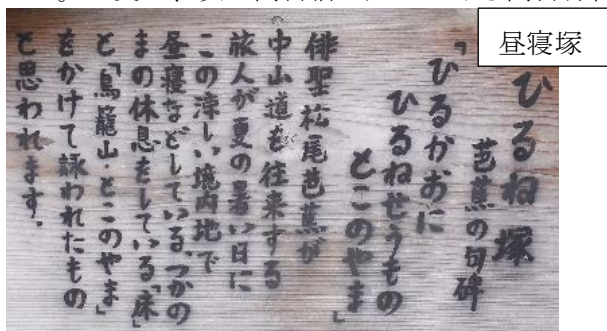 昼寝塚
ひるね塚
芭蕉の句碑
「ひるがおに
ひるねせうもの
とこのやま」
俳聖松尾芭蕉が
中山道を往来する
の
旅人が夏の暑い日に
この涼しい境内地で
昼寝などしている、つかの
まの休息をしている「床」
と「鳥籠山・とこのやま」
をかけて詠われたもの
と思われます。